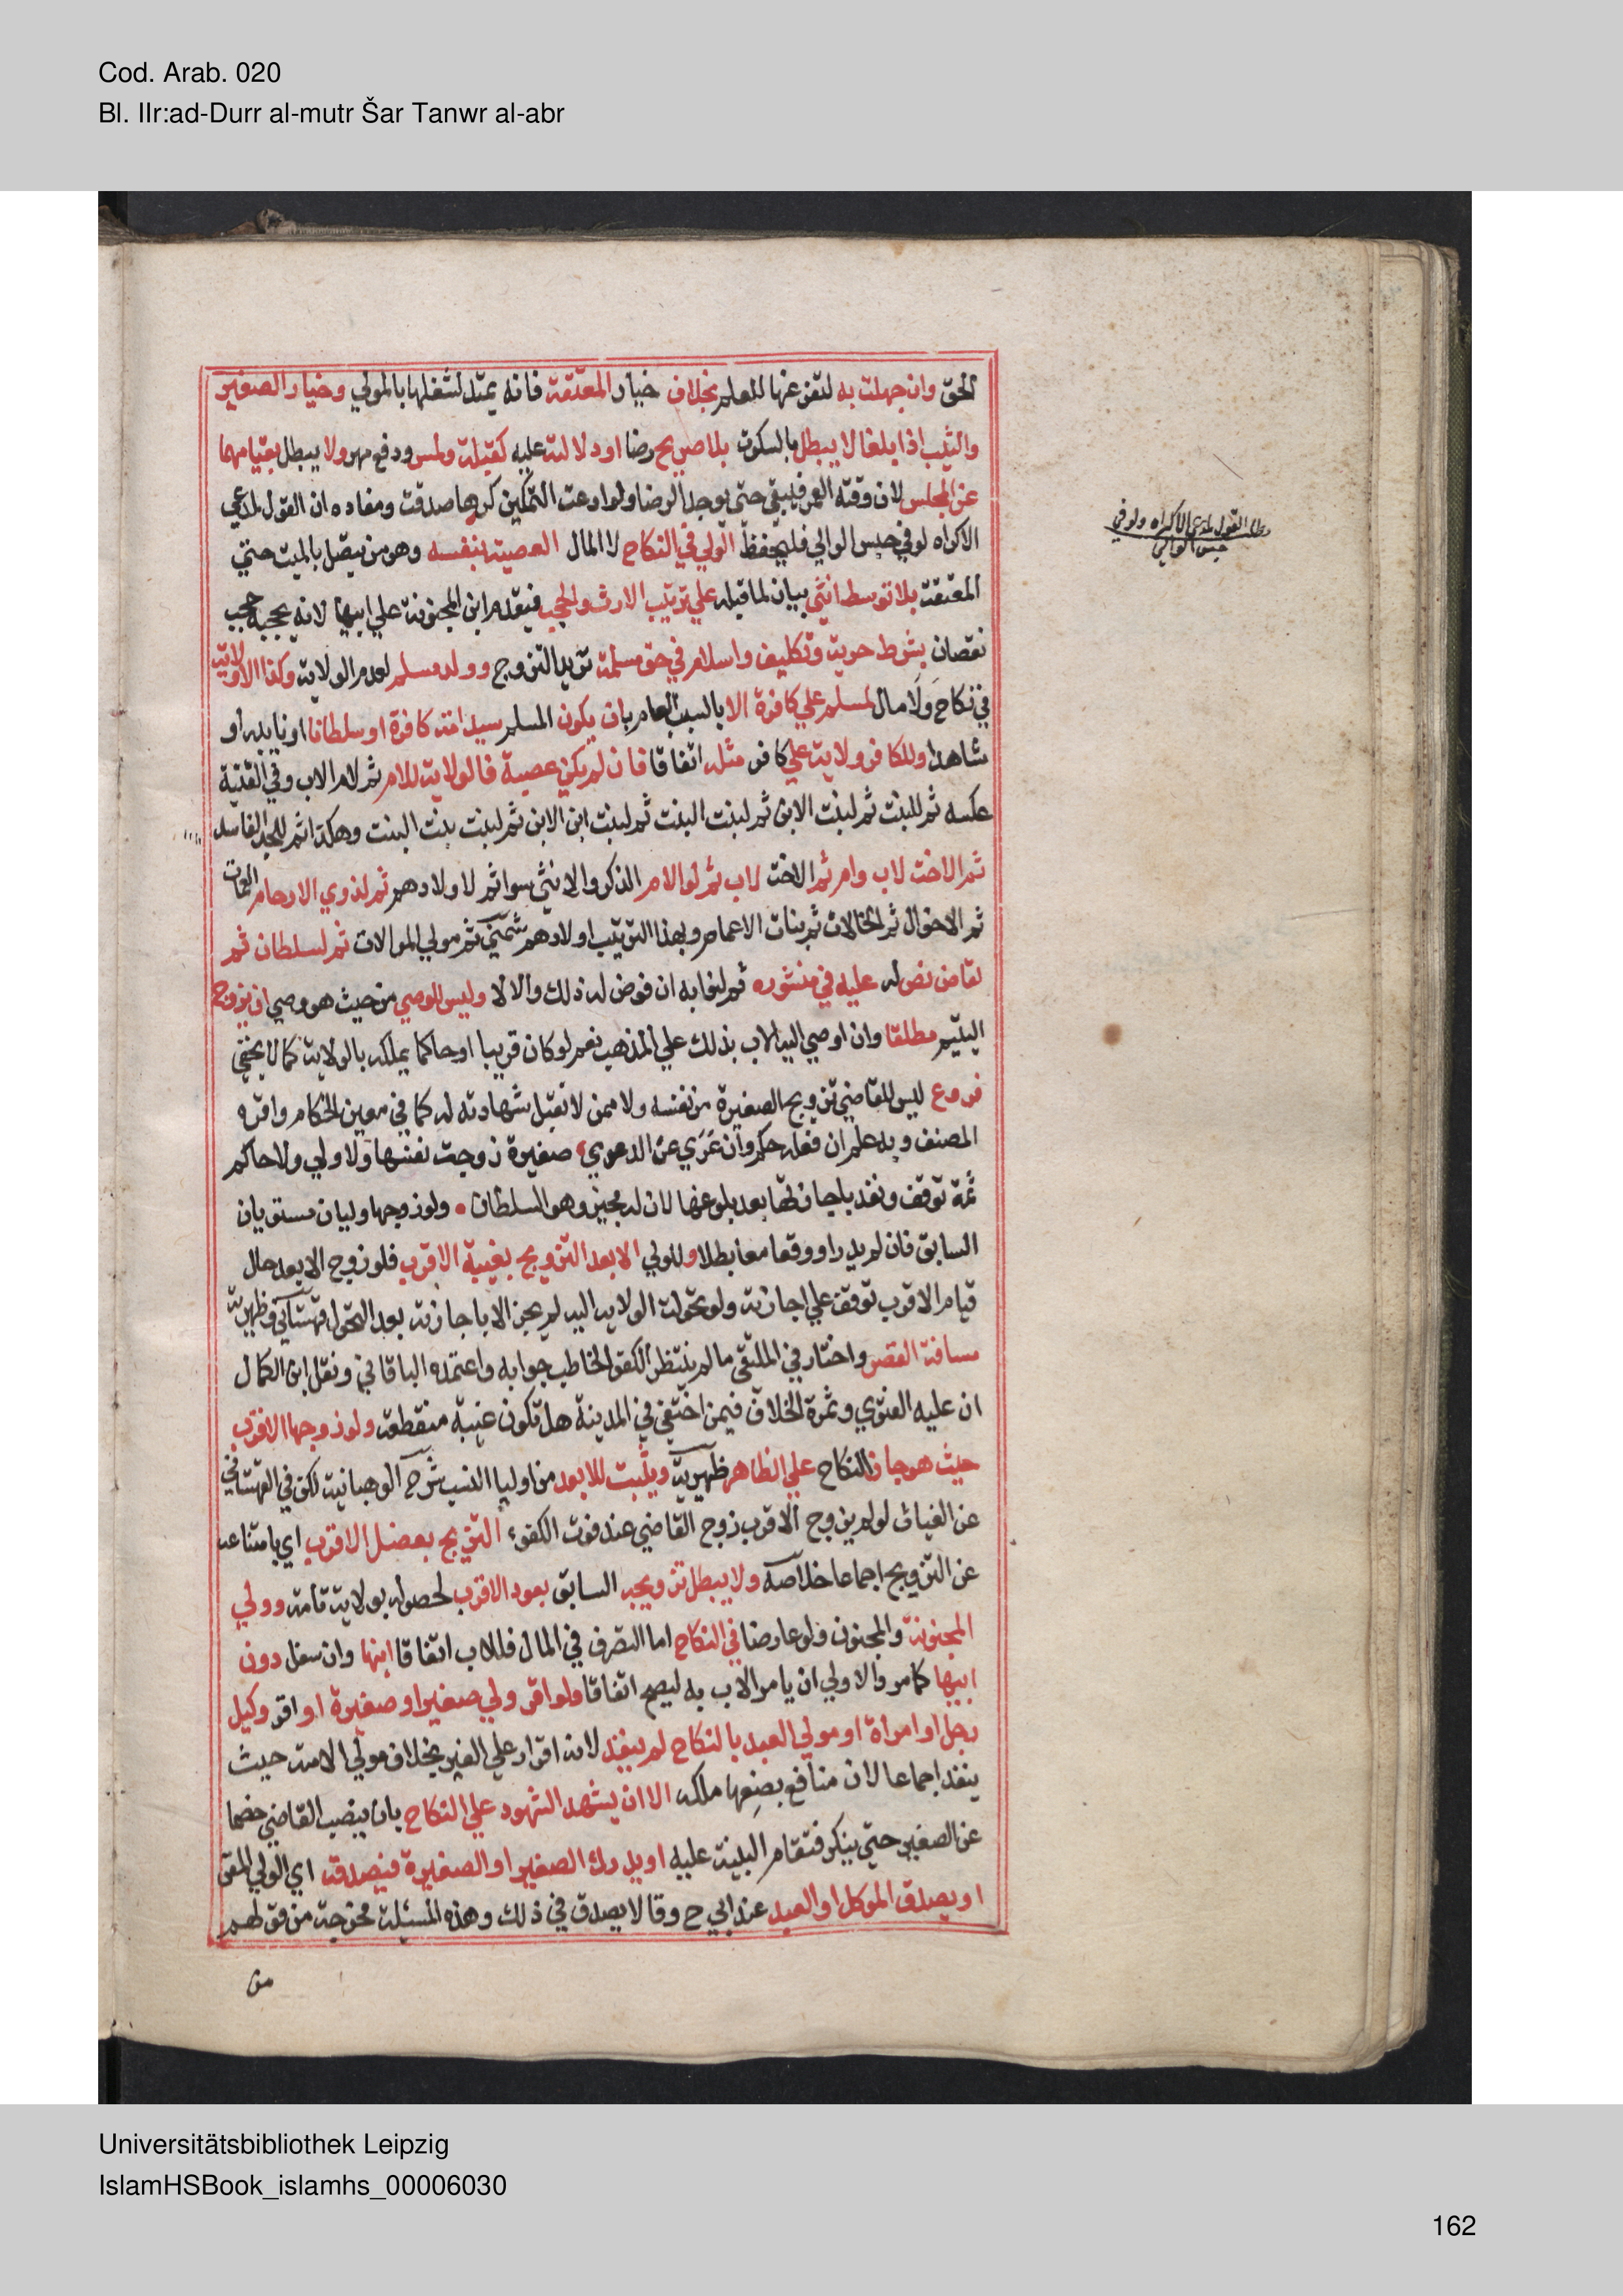 Cod. Arab. 020
Bl. IIr:ad-Durr al-mutr Šar Tanwr al-abr
الحق وان جهلت به لتفرغها للعلم بخلاف خيار المعتقة فانه يمتد لشغلها بالمولي وخيار الصغير
والثيب اذا بلغا لا يبطل بالسكوت بلا صريح رضا او دلالة عليه كقبلة ولمس ودفع مهر ولا يبطل بقيامهما
عن المجلس لان وقته العمر فيبقي حتى يوجد الرضا ولو ادعت التمكين كرها صدقت ومفاده ان القول لمدعي
الاكراه لو في حبس الوالي فليحفظ الولي في النكاح لا المال العصبة بنفسه وهو من يتصل بالميت حتي
المعتقة بلا توسط انثي بيان لما قبله علي ترتيب الارث والحجب فيقدم ابن المجنونة علي ابيها لانه يحجبه حجب
نقصان بشرط حرية وتكليف واسلام في حق مسلمة تريد التزوج وولد مسلم لعدم الولاية وكذا لا ولاية
في نكاح ولا مال لمسلم علي كافرة الا بالسبب العام بان يكون المسلم سيد امة كافرة او سلطانا او نايبه او
شاهدا وللكافر ولاية علي كافر مثله اتفاقا فان لم يكن عصبة فالولاية للام ثم لام الاب وفي القنية
عكسه ثم للبنت ثم لبنت الابن ثم لبنت البنت ثم لبنت ابن الابن ثم لبنت بنت البنت وهكذا ثم للجد الفاسد
ثم الاخت لاب وام ثم الاخت لاب ثم لوالام الذكر والانثي سوا ثم لاولادهم ثم لذوي الارحام العمات
ثم الاخوال ثم الخالات ثم بنات الاعمام وبهذا الترتيب اولادهم شمني ثم مولي الموالات ثم لسلطان ثم
لقاض نص له عليه في منشوره ثم لنوابه ان فوض له ذلك والا لا وليس للوصي من حيث هو وصي ان يزوج
اليتيم مطلقا وان اوصي اليه الاب بذلك علي المذهب نعم لو كان قريبا او حاكما يملكه بالولاية كما لا يخفي
فروع ليس للقاضي تزويج الصغيرة من نفسه ولا ممن لا تقبل شهادته له كما في معين الحكام واقره
المصنف وبه علم ان فعله حكم وان عري عن الدعوي صغيرة زوجت نفسها ولا ولي ولا حاكم
ثمة توقف ونفذ باجازتها بعد بلوغها لان له مجيز وهو السلطان ولو زوجها وليان مستويان
السابق فان لم يدر او وقعا معا بطلا وللولي الابعد التزويج بغيبة الاقرب فلو زوج الابعد حال
قيام الاقرب توقف علي اجازته ولو تحولت الولاية اليه لم يجز الا باجازته بعد التحول قهستاني وظهيرية
مسافة القصر واختار في الملتقي ما لم ينتظر الكفو الخاطب جوابه واعتمده الباقاني ونقل ابن الكمال
ان عليه الفتوي وثمرة الخلاف فيمن اختفي في المدينة هل تكون غيبة منقطعة ولو زوجها الاقرب
حيث هو جاز النكاح علي الظاهر ظهيرية ويثبت للابعد من اوليا النسب شرح الوهبانية لكن في القهستاني
عن الغياثي لو لم يزوج الاقرب زوج القاضي عند فوت الكفوء التزيج بعضل الاقرب اي بامتناعه
عن التزويج اجماعا خلاصة ولا يبطل تزويجه السابق بعود الاقرب لحصوله بولاية تامة وولي
المجنونة والمجنون ولو عارضا في النكاح اما التصرف في المال فللاب اتفاقا ابنها وان سفل دون
ابيها كما مر والاولي ان يامر الاب به ليصح اتفاقا ولو اقر ولي صغير او صغيرة او اقر وكيل
رجل او امراة او مولي العبد بالنكاح لم ينفذ لانه اقرار علي الغير بخلاف مولي الامة حيث
ينفذ اجماعا لان منافع بضعها ملكه الا ان يشهد الشهود علي النكاح بان ينصب القاضي خصما
عن الصغير حتي ينكر فتقام البينة عليه او يدرك الصغير او الصغيرة فيصدقه اي الولي المقر
او يصدق الموكل او العبد عند ابي ح وقالا يصدق في ذلك وهذه المسئلة مخرجة من قولهم
من
مطل القول لمدعي الاكراه ولو في
حبس الوالي
Universitätsbibliothek Leipzig
IslamHSBook_islamhs_00006030
162